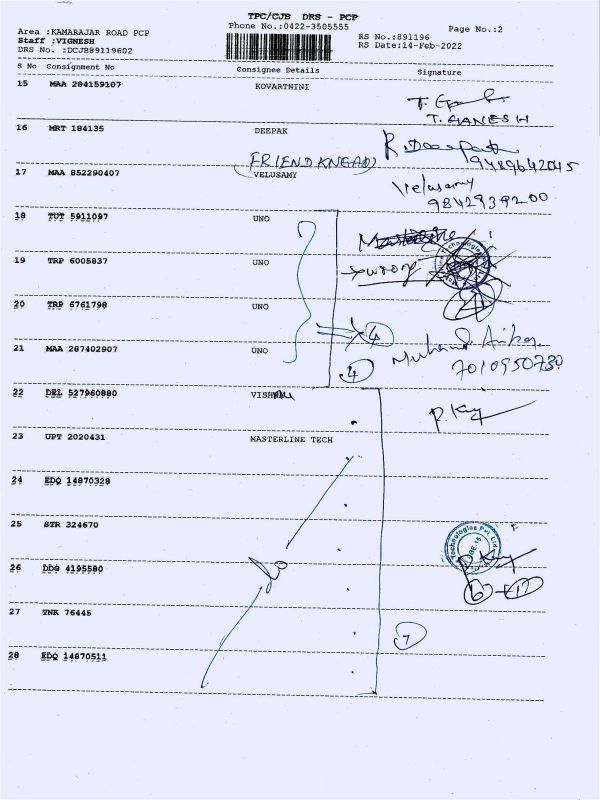 TPC/CJB DRS - PCP
Phone No.:0422-3505555
Page No.:2
Area :KAMARAJAR ROAD PCP
Staff :VIGNESH
DRS No. :DCJB89119602
RS No.:891196
RS Date:14-Feb-2022
S No Consignment No Consignee Details Signature
15 MAA 284159107 KOVARTNINI
T. GANESH
16 MRT 184135 DEEPAK
9489642045
FRIEND KNGADI
17 MAA 852290407 VELUSAMY
Velusamy
9842939200
18 TUT 5911097 UNO
19 TRP 6005837 UNO
wrong
20 TRP 6761798 UNO
4
21 MAA 287402907 UNO
7010950730
4
22 DEL 527960880 VISHNU
23 UPT 2020431 MASTERLINE TECH
24 EDQ 14870328
25 STR 324670
Technologies Pvt Ltd
26 DDG 4195580
6
27 TNK 76445
7
28 EDQ 14870511